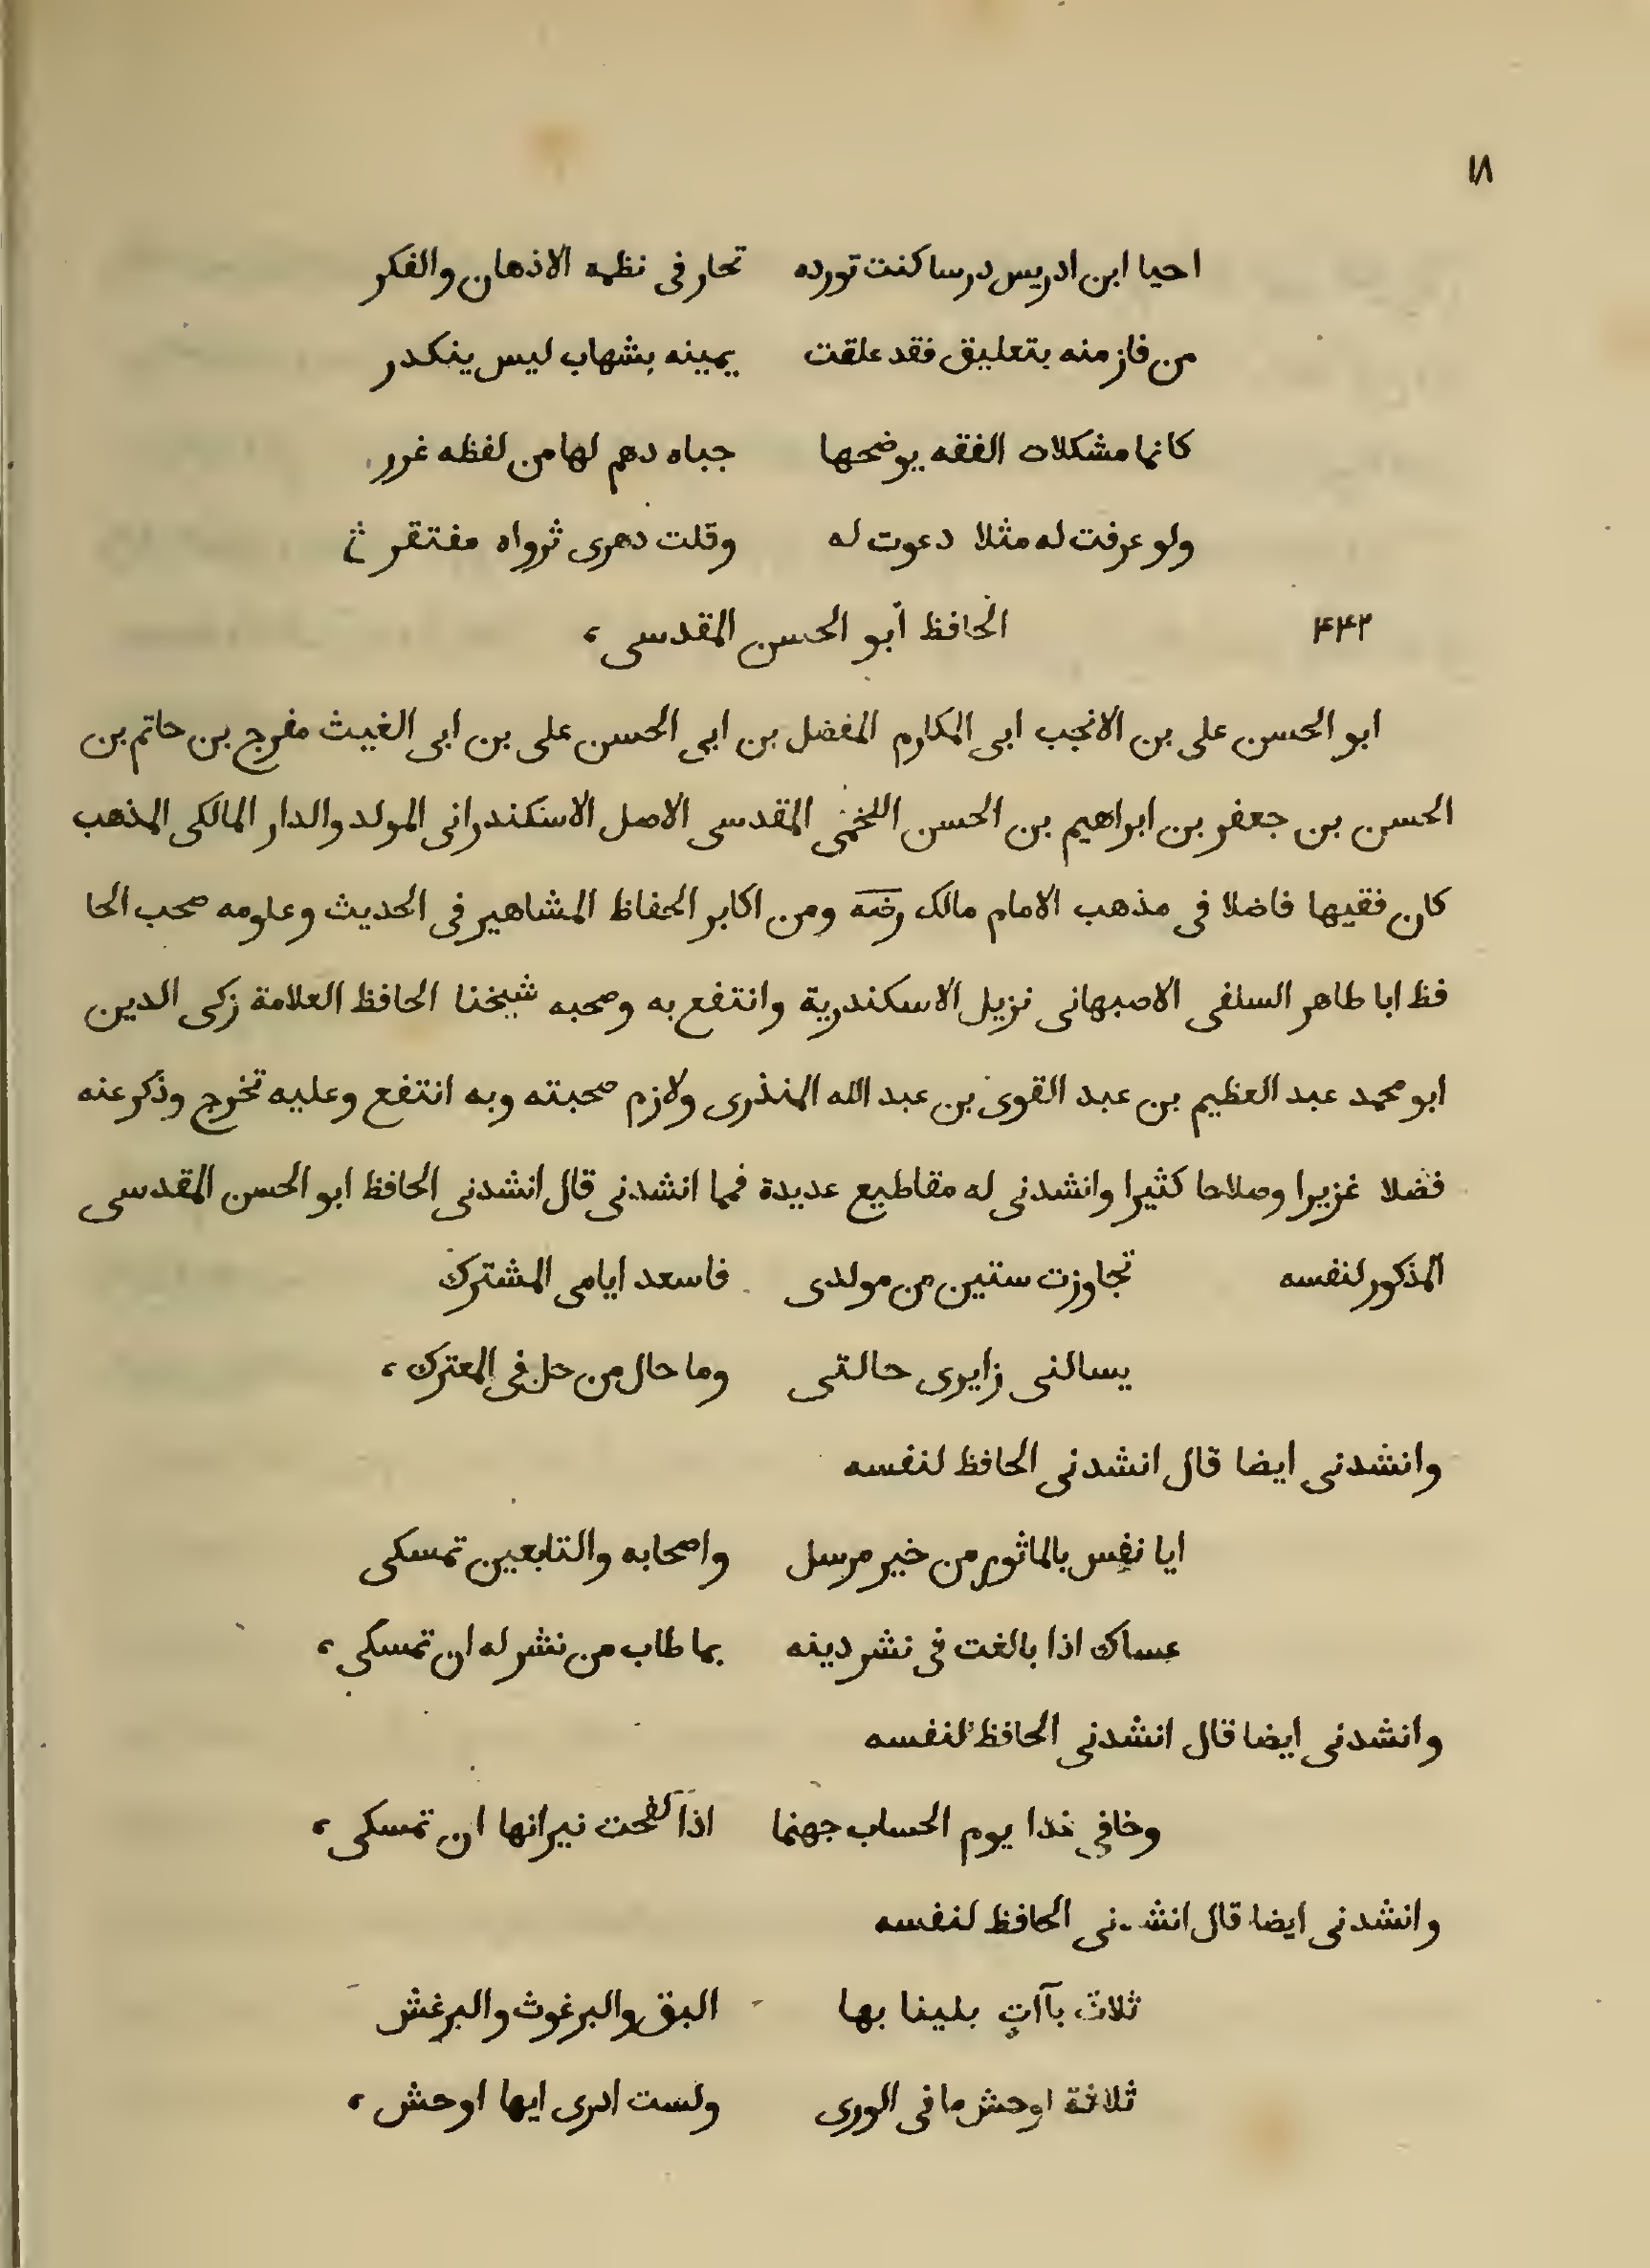 ١٨
احيا ابن ادريس درسا كنت تورده تحار فى نظمه الاذهان والفكر
من فاز منه بتعليق فقد علقت يمينه بشهاب ليس ينكدر
كانما مشكلات الفقه يوضحها جباه دهم لها من لفظه غرر
ولو عرفت له مثلا دعوت له وقلت دهرى ثرواه مفتقر
۴۴۲ الحافظ أبو الحسن المقدسى ،
ابو الحسن على بن الانجب ابى المكارم المفضل بن ابى الحسن على بن ابى الغيث مفرج بن حاتم بن
الحسن بن جعفر بن ابراهيم بن الحسن اللخمى المقدسى الاصل الاسكندرانى المولد والدار المالكى المذهب
كان فقيها فاضلا فى مذهب الامام مالك رضه ومن اكابر الحفاظ المشاهير فى الحديث وعلومه صحب الحا
فظ ابا طاهر السلفى الاصبهانى نزيل الاسكندرية وانتفع به وصحبه شيخنا الحافظ العلامة زكى الدين
ابو محمد عبد العظيم بن عبد القوى بن عبد الله المنذرى ولازم صحبته وبه انتفع وعليه تخرج وذكر عنه
فضلا غزيرا وصلاحا كثيرا وانشدنى له مقاطيع عديدة فمما انشدنى قال انشدنى الحافظ ابو الحسن المقدسى
المذكور لنفسه تجاوزت ستين من مولدى فاسعد ايامى المشترك
يسالنى زايرى حالتى وما حال من حل فى المعترك ،
وانشدنى ايضا قال انشدنى الحافظ لنفسه
ايا نفس بالماثور من خير مرسل واصحابه والتابعين تمسكى
عساك اذا بالغت فى نشر دينه بما طاب من نشر له ان تمسكى ،
وانشدنى ايضا قال انشدنى الحافظ لنفسه
وخافى غدا يوم الحساب جهنما اذا لفحت نيرانها ان تمسكى ،
وانشدنى ايضا قال انشدنى الحافظ لنفسه
ثلاث بآات بلينا بها البق والبرغوث والبرغش
ثلاثة اوحش ما فى الورى ولست ادرى ايها اوحش ،